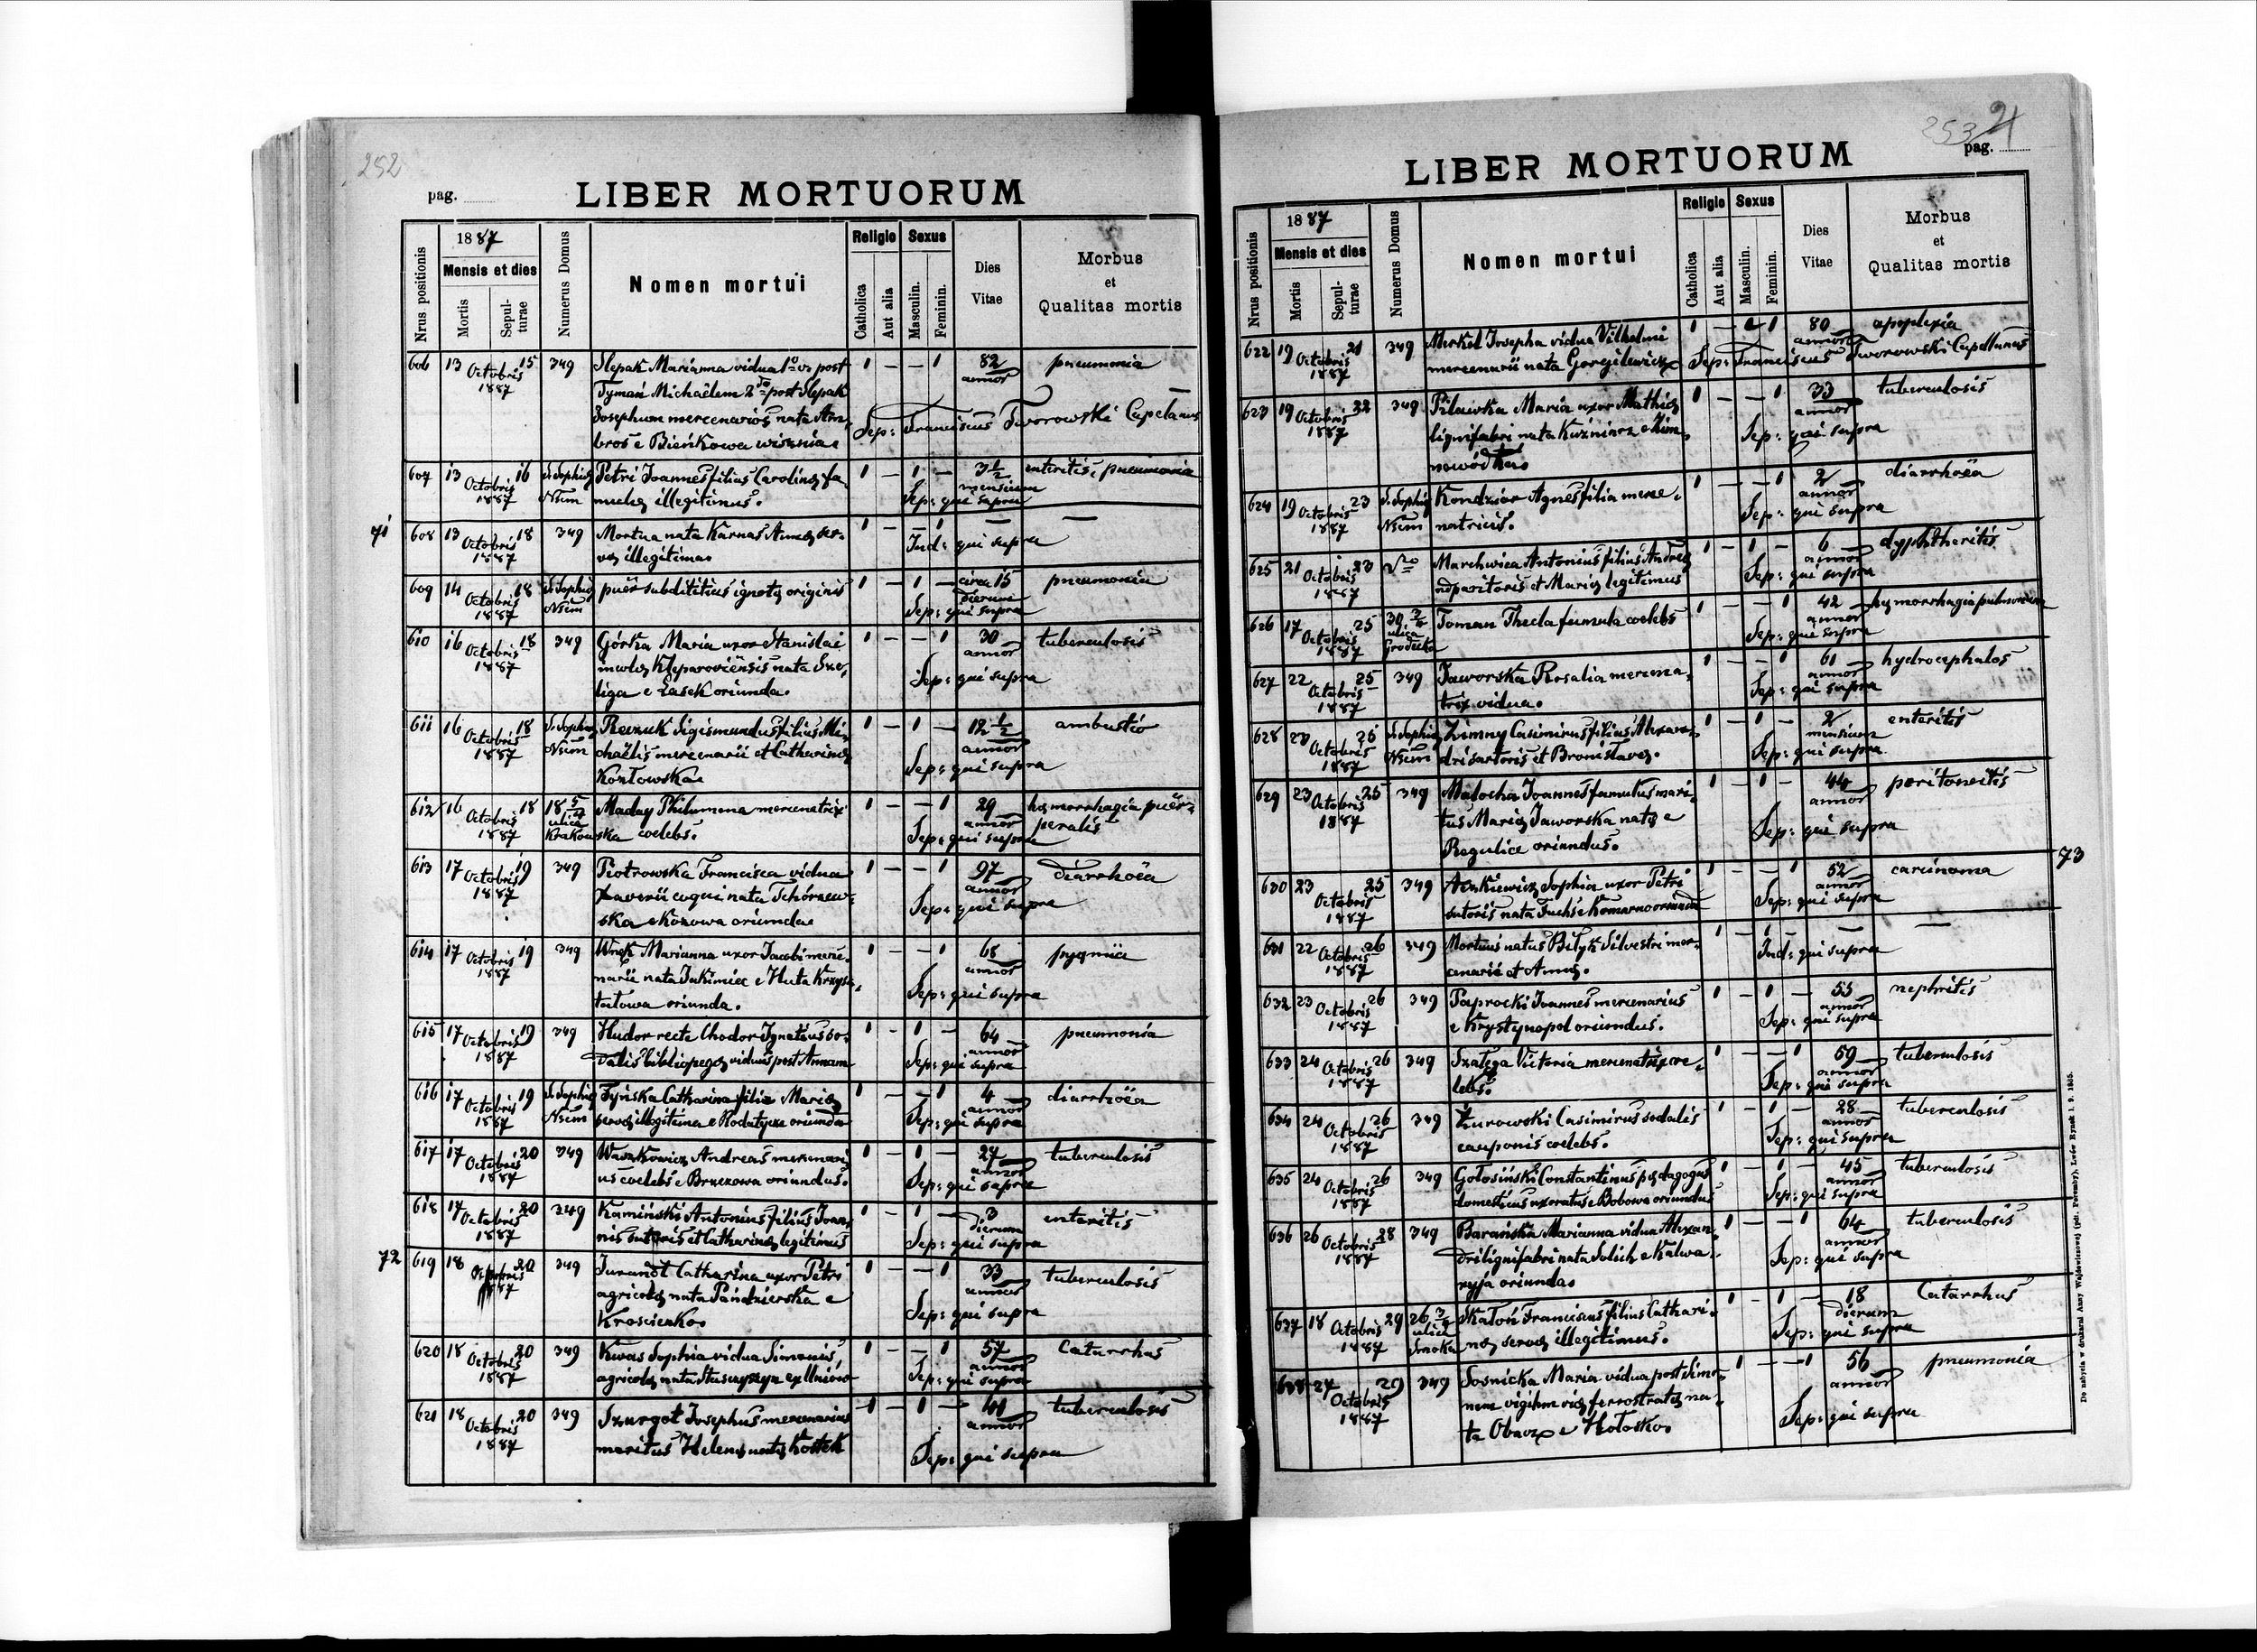 252
pag.
LIBER MORTUORUM
Nrus positionis
1887
Mensis et dies
Mortis
Sepulturae
Numerus Domus
Nomen mortui
Religio
Catholica
Aut alia
Sexus
Masculin.
Feminin.
Dies Vitae
Morbus et Qualitas mortis
606 13 Octobris 15 1887 349 Slepak Marianna vidua 1º vº post 1 – – 1 82 annor pneumonia
Tyman Michaëlem 2do post Slepak
Josephum mercenarios nata Am-
bros e Bieńkowa wisznia
Sep: Franciscus Tworowski Capelanus
607 13 Octobris 16 1887 S. Sophia Nsum Petri Joannes filius Carolinæ fa- 1 – 1 – 3 1/2 mensium enteritis, pneumonia
mulæ illegitimus.
Sep: qui supra
71
608 13 Octobris 18 1887 349 Mortua nata Karnas Annæ ser- 1 – – 1 – –
væ illegitima
Ind: qui supra
609 14 Octobris 18 1887 S. Sophia Nsum puer subdititius ignotæ originis 1 – 1 – circa 15 dierum pneumonia
Sep: qui supra
610 16 Octobris 18 1887 349 Górka Maria uxor Stanislai 1 – – 1 30 annor tuberculosis
incolæ Kleparoviensis nata Sze-
liga e Lasek oriunda.
Sep: qui supra
611 16 Octobris 18 1887 S. Sophia Nsum Sigismundus filius Mi- 1 – 1 – 12 1/2 annor ambustio
chaëlis mercenarii et Catharinæ
Kozłowska
Sep: qui supra
612 16 Octobris 18 1887 18 5/4 ulica Krakowska Maday Philumena mercenatrix 1 – – 1 29 annor hæmorrhagia puër-
coelebs. peralis
Sep: qui supra
613 17 Octobris 19 1887 349 Piotrowska Francisca vidua 1 – – 1 97 annor diarrhoëa
Xaverii coqui nata Tchórzew-
ska e Kozowa oriunda
Sep: qui supra
614 17 Octobris 19 1887 349 Wnęk Marianna uxor Jacobi merce- 1 – – 1 68 annor pyæmia
narii nata Jakimiec e Huta Krzysz-
tałowa oriunda.
Sep: qui supra
615 17 Octobris 19 1887 349 Hudor recte Chodor Ignatius so- 1 – 1 – 64 annor pneumonia
dalis bibliopegæ viduus post Annam
Sep: qui supra
616 17 Octobris 19 1887 S. Sophia Nsum Tyńska Catharina filia Mariæ 1 – – 1 4 annor diarrhöea
servæ illegitima e Rodatycze oriunda
Sep: qui supra
617 17 Octobris 20 1887 349 Waszkowicz Andreas mercenari- 1 – 1 – 27 annor tuberculosis
us coelebs e Brzezowa oriundus.
Sep: qui supra
618 17 Octobris 20 1887 349 Kamiński Antonius filius Joan- 1 – 1 – 3 dierum enteritis
nis sutoris et Catharinæ legitimus
Sep: qui supra
72
619 18 Octobris 20 1887 349 Jurandt Catharina uxor Petri 1 – – 1 33 annor tuberculosis
agricolæ nata Pandzierska e
Kroscienko.
Sep: qui supra
620 18 Octobris 20 1887 349 Kwas Sophia vidua Simonis, 1 – – 1 57 annor Catarrhus
agricolæ nata ex Uniow
Sep: qui supra
621 18 Octobris 20 1887 349 Szurgot Josephus mercenarius 1 – 1 – 41 annor tuberculosis
maritus Helenæ natæ Kostek
Sep: qui supra
253
21
pag.
LIBER MORTUORUM
Nrus positionis
1887
Mensis et dies
Mortis
Sepulturae
Numerus Domus
Nomen mortui
Religio
Catholica
Aut alia
Sexus
Masculin.
Feminin.
Dies Vitae
Morbus et Qualitas mortis
622 19 Octobris 21 1887 349 Merkel Josepha vidua Vilhelmi 1 – – 1 80 annor apoplexia
mercenarii nata Gorgilewicz
Sep: Franciscus Tworowski Capellanus
623 19 Octobris 22 1887 349 Pilawska Maria uxor Mathiæ 1 – – 1 33 annor tuberculosis
lignifabri nata Kuźniarz e Zim-
nowódka
Sep: qui supra
624 19 Octobris 23 1887 S. Sophia Nsum Kondzior Agnes filia merce- 1 – – 1 2 annor diarrhoëa
natricis.
Sep: qui supra
625 21 Octobris 23 1887 Marchwica Antonius filius Andreæ 1 – 1 – 6 annor dyphtheritis
apparitoris et Mariæ legitimus
Sep: qui supra
626 17 Octobris 25 1887 30 3/4 ulica Grodecka Toman Thecla famula coelebs 1 – – 1 42 annor hæmorrhagia pulmonum
Sep: qui supra
627 22 Octobris 25 1887 349 Jaworska Rosalia mercena- 1 – – 1 61 annor hydrocephalos
trix vidua.
Sep: qui supra
628 20 Octobris 25 1887 S. Sophia Nsum Zimny Casimirus filius Alexan- 1 – 1 – 2 mensium enteritis
dri sartoris et Bronislavæ.
Sep: qui supra
629 23 Octobris 25 1887 349 Matocha Joannes famulus mari- 1 – 1 – 44 annor peritoneitis
tus Mariæ Jaworska natæ e
Regulice oriundus.
Sep: qui supra
73
630 23 Octobris 25 1887 349 Sophia uxor Petri 1 – – 1 52 annor carcinoma
sutoris nata Fuchs e Komarno oriunda
Sep: qui supra
631 22 Octobris 26 1887 349 Mortuus natus Bilyk Silvestri mer- 1 – 1 – – –
cenarii et Annæ.
Ind: qui supra
632 23 Octobris 26 1887 349 Paprocki Joannes mercenarius 1 – 1 – 55 annor nephritis
e Krystynopol oriundus.
Sep: qui supra
633 24 Octobris 26 1887 349 Victoria mercenatrix coe- 1 – – 1 59 annor tuberculosis
lebs.
Sep: qui supra
634 24 Octobris 26 1887 349 Żurowski Casimirus sodalis 1 – 1 – 28 annor tuberculosis
cauponis coelebs.
Sep: qui supra
635 24 Octobris 26 1887 349 Gołosiński Constantinus pædagogus 1 – 1 – 45 annor tuberculosis
domesticus uxoratus e Bobowa oriundus
Sep: qui supra
636 26 Octobris 28 1887 349 Barańska Marianna vidua Alexan- 1 – – 1 64 annor tuberculosis
dri lignifabri nata Solich e Kalwa-
ryja oriunda.
Sep: qui supra
637 18 Octobris 29 1887 26 3/4 ulica Smoka Skatoń Franciscus filius Cathari- 1 – 1 – 18 dierum Catarrhus
næ servæ illegitimus.
Sep: qui supra
638 27 Octobris 29 1887 349 Sosnicka Maria vidua post Simo- 1 – – 1 56 annor pneumonia
nem vigilem viæ ferrostratæ na-
ta e Hołosko.
Sep: qui supra
Do nabycia w drukarni Anny Wajdowiczowej